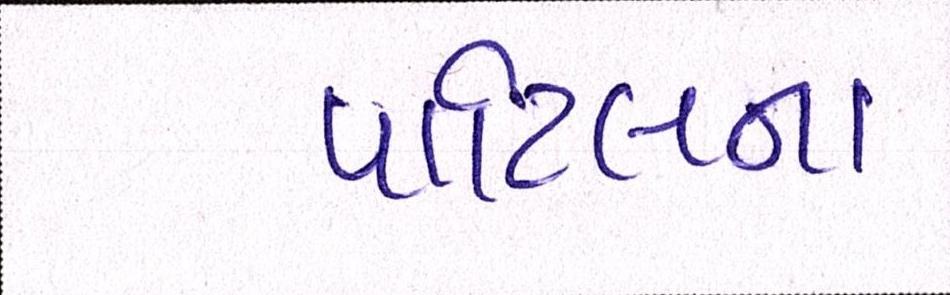 પાટિલના